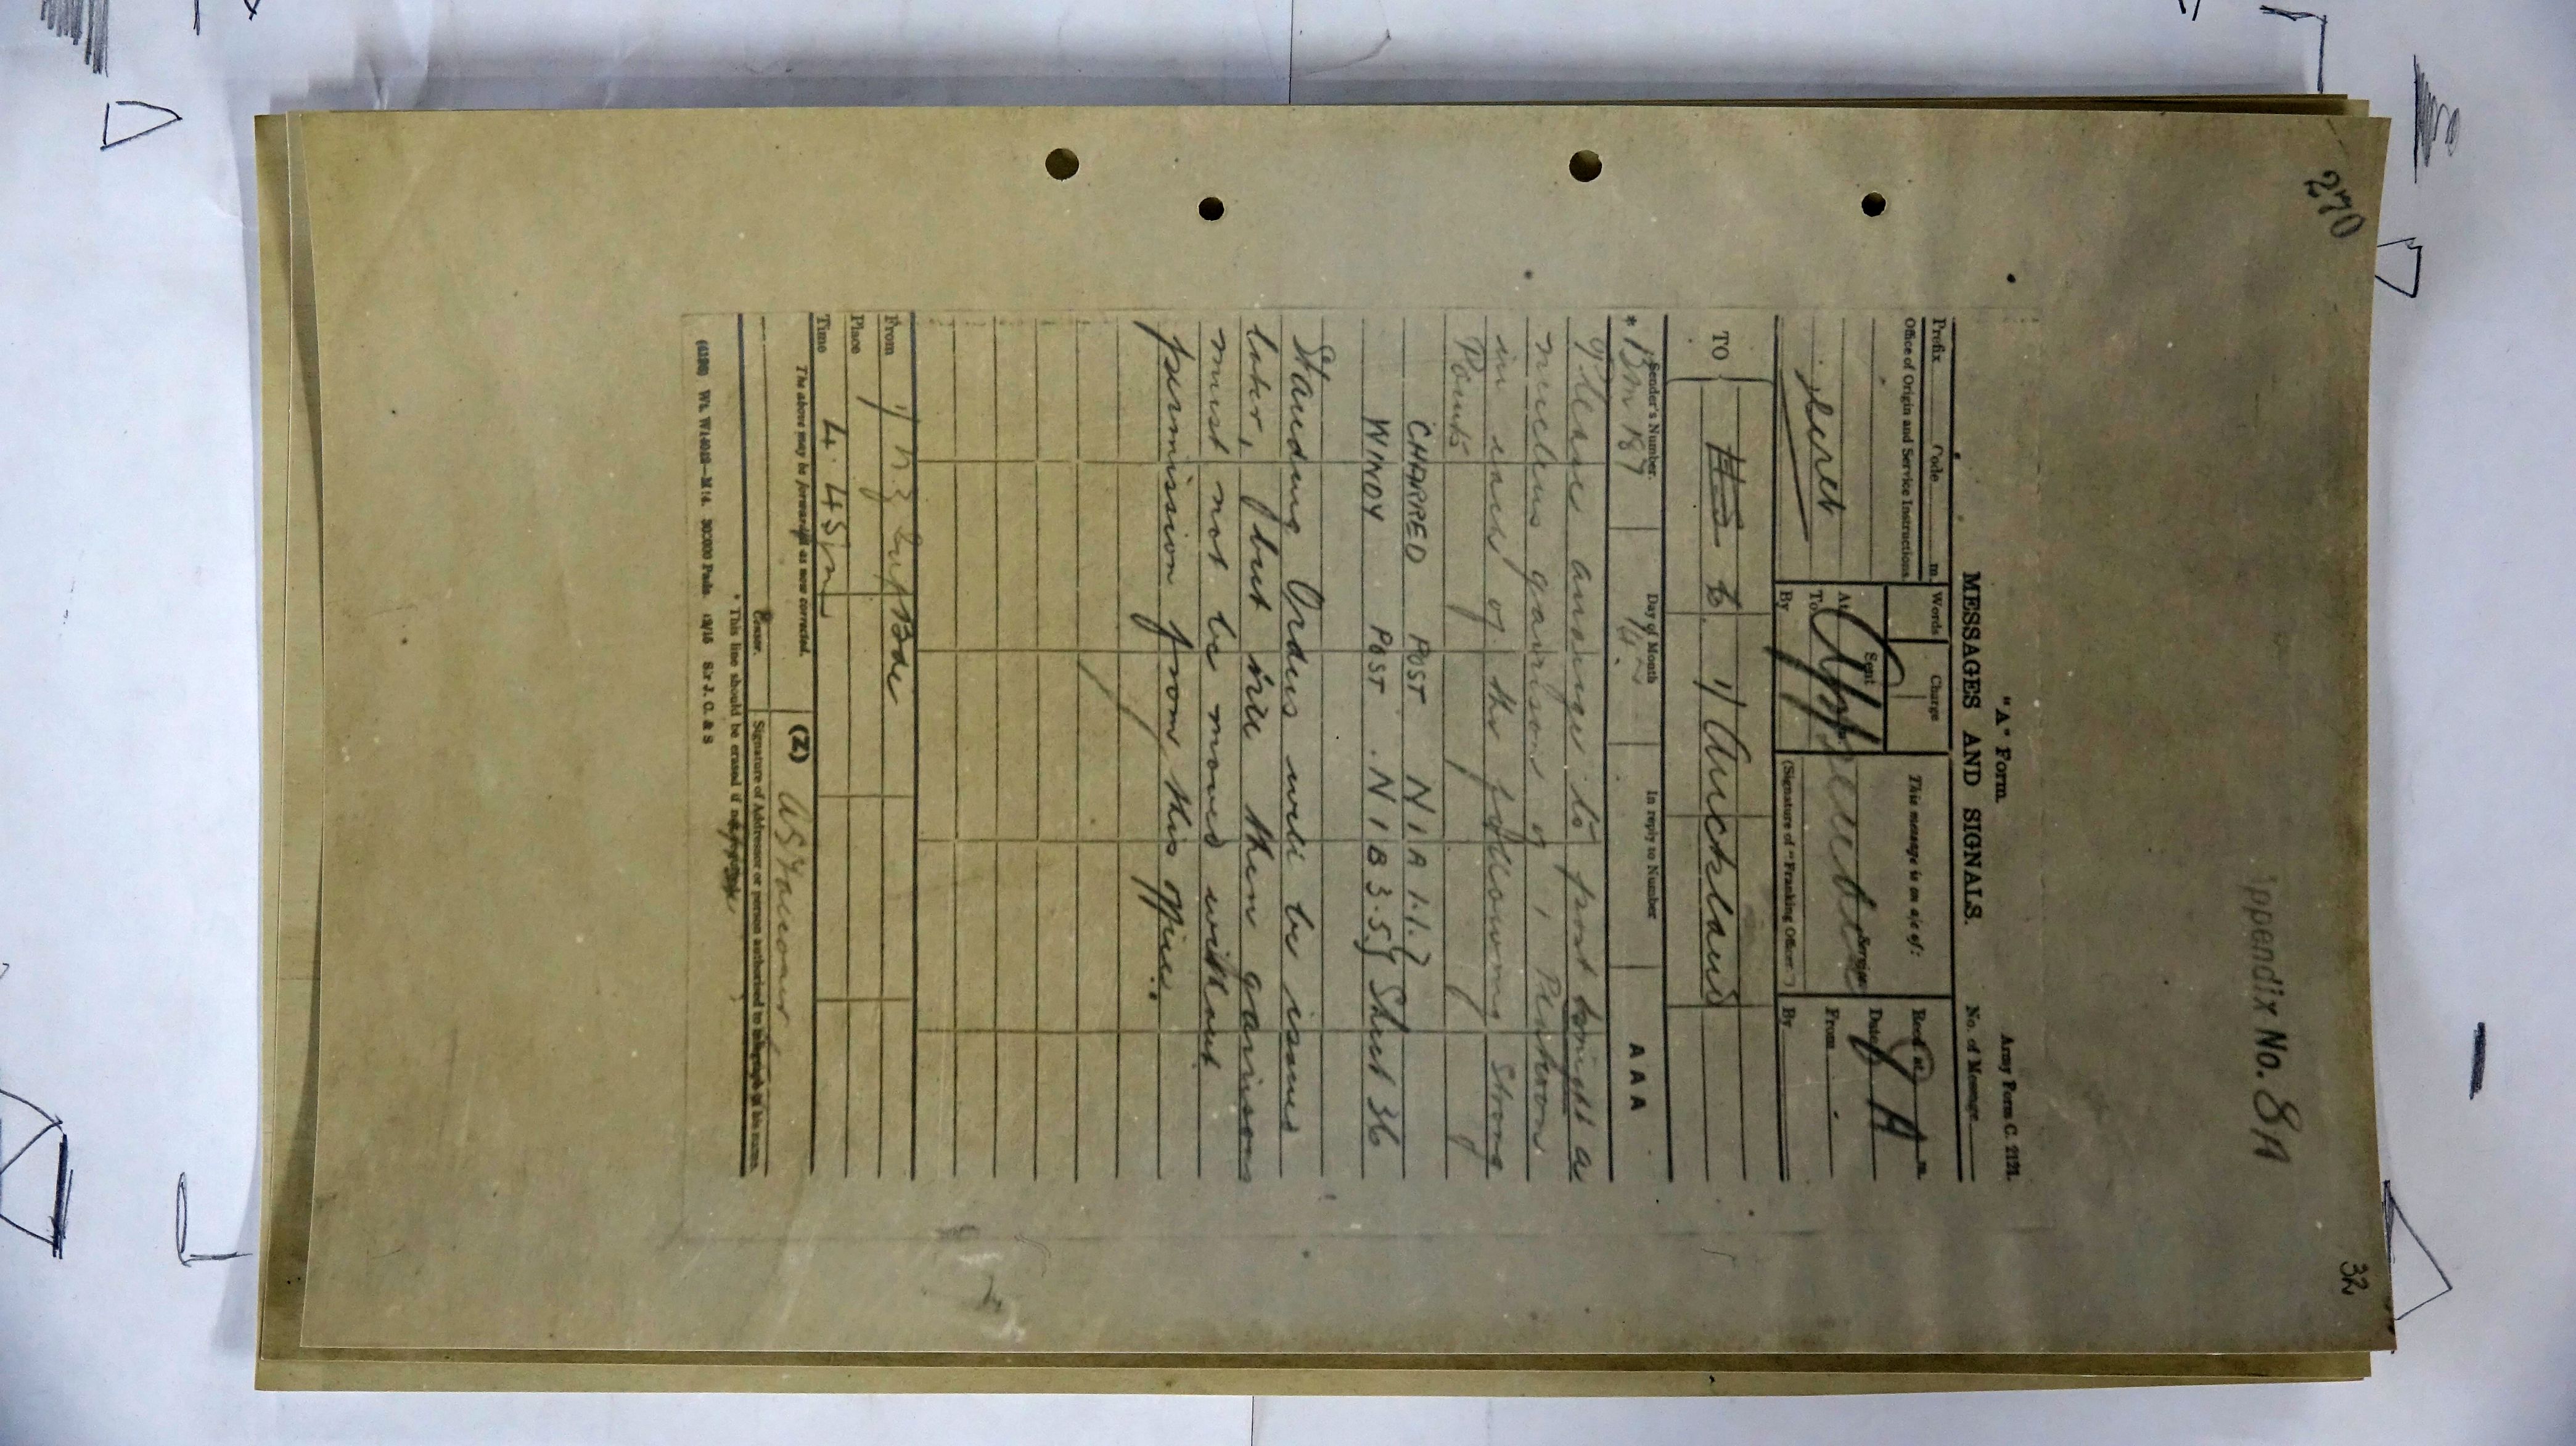 270
32
Appendix No. 8A
"A" Form.
Army Form C. 2121.
MESSAGES AND SIGNALS.
No. of Message
Prefix Code m.
Words
Charge
This message is on a/c of:
Recd. at m.
Office of Origin and Service Instructions.
Sent
Date
Secret
At m.
Service.
From
To
By
(Signature of "Franking Officer.")
By
TO
to 1/ Auckland
Sender's Number.
Day of Month
In reply to Number
AAA
* BM 187
14
Please arrange to post tonight a
nucleus garrison of 1 Platoon
in each of the following Strong
Points
CHARRED POST N 1 A 1.1.
WINDY POST . N 1 B 3.5. } Sheet 36
Standing Orders will be issued
later, but the garrisons
must not be moved without
permission from this office..
From 1/ NZ Inf Bde
Place
Time 4.45pm
The above may be forwarded as now corrected.
(Z)
Censor.
Signature of Addressor or person authorised to telegraph in his name.
* This line should be erased if not required.
Sir J. C. & S